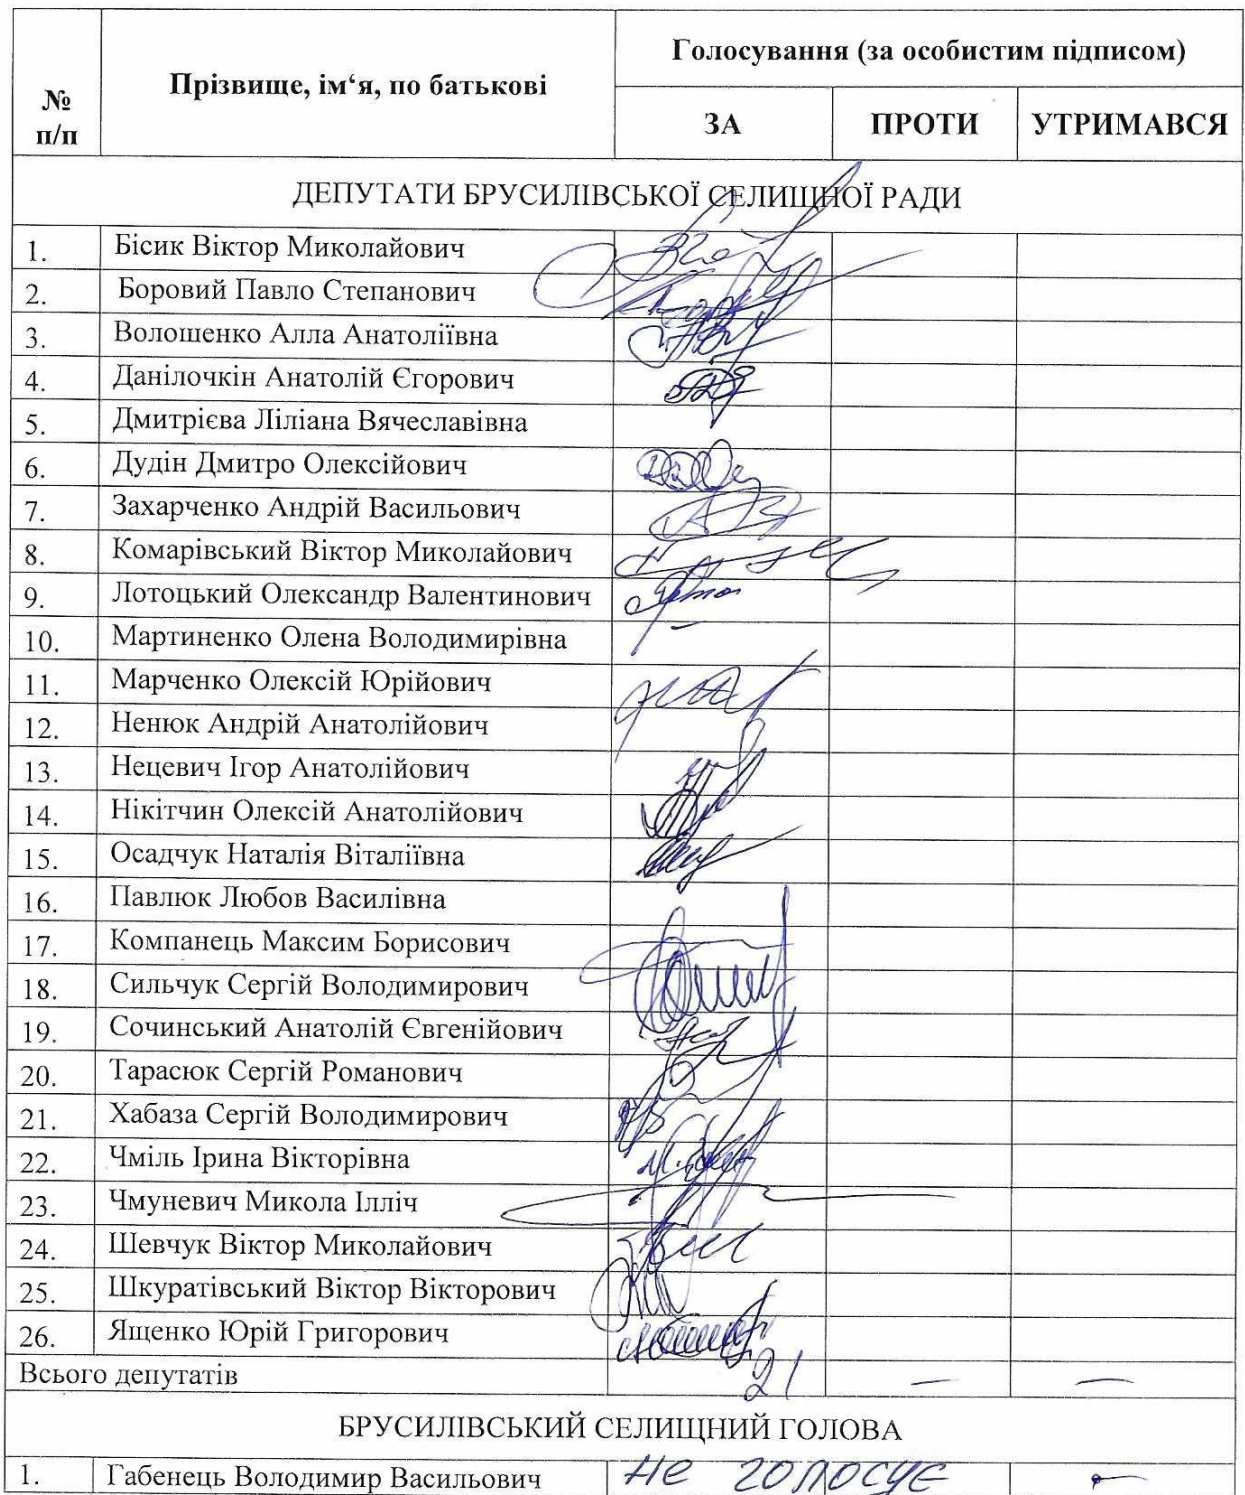 № п/п
Прізвище, ім‘я, по батькові
Голосування (за особистим підписом)
ЗА ПРОТИ УТРИМАВСЯ
ДЕПУТАТИ БРУСИЛІВСЬКОЇ СЕЛИЩНОЇ РАДИ
1. Бісик Віктор Миколайович
2. Боровий Павло Степанович
3. Волошенко Алла Анатоліївна
4. Данілочкін Анатолій Єгорович
5. Дмитрієва Ліліана Вячеславівна
6. Дудін Дмитро Олексійович
7. Захарченко Андрій Васильович
8. Комарівський Віктор Миколайович
9. Лотоцький Олександр Валентинович
10. Мартиненко Олена Володимирівна –
11. Марченко Олексій Юрійович
12. Ненюк Андрій Анатолійович
13. Нецевич Ігор Анатолійович
14. Нікітчин Олексій Анатолійович
15. Осадчук Наталія Віталіївна
16. Павлюк Любов Василівна
17. Компанець Максим Борисович
18. Сильчук Сергій Володимирович
19. Сочинський Анатолій Євгенійович
20. Тарасюк Сергій Романович
21. Хабаза Сергій Володимирович
22. Чміль Ірина Вікторівна
23. Чмуневич Микола Ілліч
24. Шевчук Віктор Миколайович
25. Шкуратівський Віктор Вікторович
26. Ященко Юрій Григорович
Всього депутатів 21 – –
БРУСИЛІВСЬКИЙ СЕЛИЩНИЙ ГОЛОВА
1. Габенець Володимир Васильович не голосує –